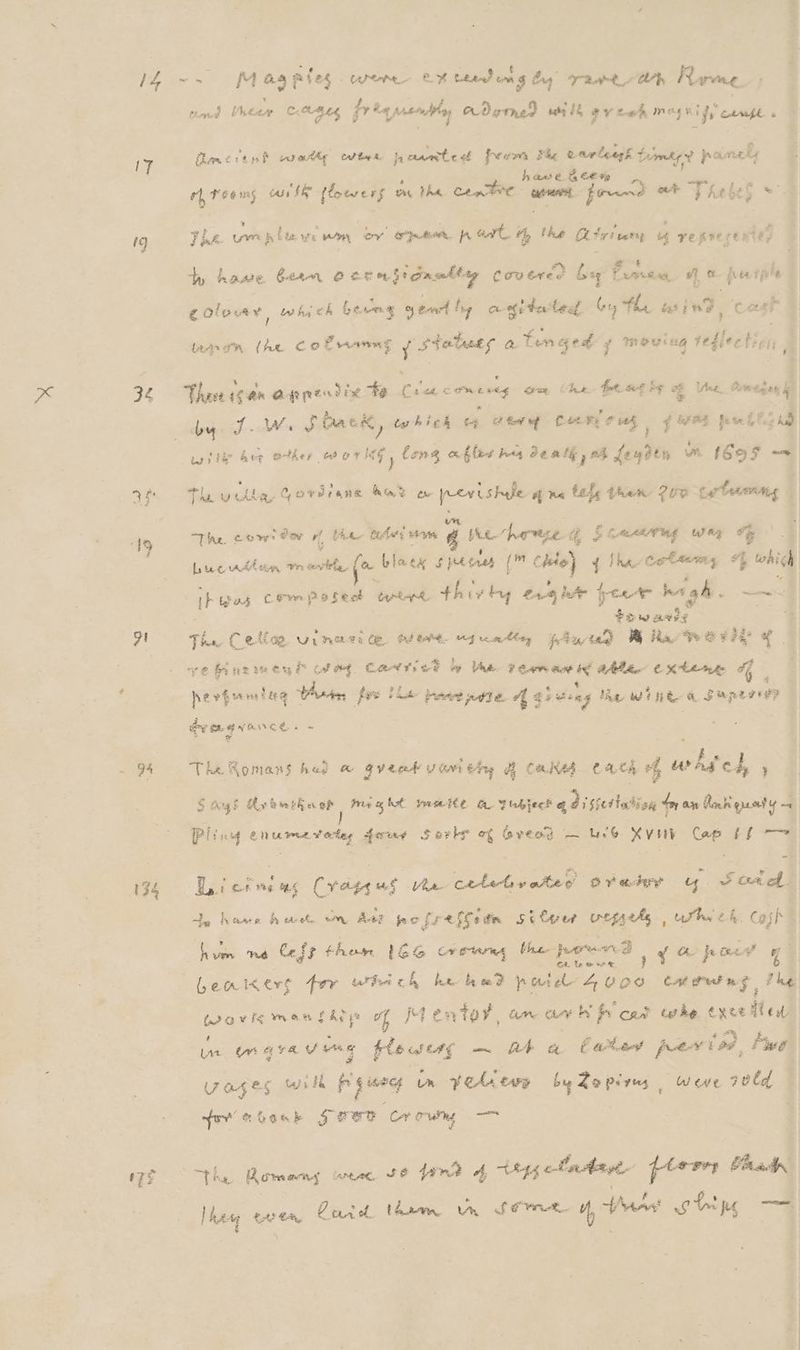 14 -- Magpies were exceedingly rare in Rome,
and their cages frequently adorned with great magnificence.
17 Ancient walls were painted from the earliest times & panels
have been
of rooms with flowers in the centre found at Thebes -
19 The impluvium or open part of the Atrium is represented
to have been occasionally covered by linen of a purple
colour, which being gently agitated by the wind, cast
upon the columns & statues a tinged & moving reflection,
X 34 There is an appendix to Ciacconius on the of the Ancients
by J. W. Stuck, which is very curious, & was published
with his other works, long after his death, at Leyden in 1695 —
The villa Gordiana had a peristyle of no less than 200 columns
in
49 The corridor of the atrium the house of Scaurus was of
Lucullan marble (a black species (m Chio) & the columns of which
it was composed were thirty eight feet high. —
towards
91 The Cellae vinariae were usually placed the North &
refinement was carried to the remarkable extent of
perfuming them for the purpose of giving the wine a superior
fragrance. -
94 The Romans had a great variety of cakes each of which,
says Arbuthnot, might make a subject of dissertation for an Antiquary -
Pliny enumerates four sorts of bread — Lib XVIII Cap 11 —
134 Licinius Crassus the celebrated orator is said
to have had in his possession silver vessels, which cost
him no less than 166 crowns the pound, & a pair of
beakers for which he had paid 4000 crowns, the
workmanship of Mentor, an artificer who excelled
in engraving flowers — At a later period, two
vases with figures in relievo by Zopirus, were sold
for about 5000 crowns —
175 The Romans were so fond of tesselated floors that
they even laid them in some of their ships —